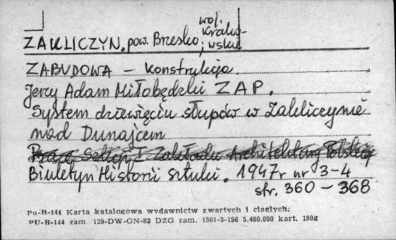 woj. Krako-
ZAKLICZYN, pow. Brzesko, wskie
ZABUDOWA – konstrukcja
Jerzy Adam Miłobędzki Z A P.
System dziewięciu słupów w Zakliczynie
nad Dunajcem
Prace Sekcji I Zakładu Architektury Polskiej
Biuletyn Historii Sztuki. 1947 r nr 3-4
str. 360 – 368
Pu-B-144 Karta katalogowa wydawnictw zwartych i ciągłych;
Pu-B-144 zam 129-DW-ON-82 DZG zam. 1501-3-196 5.480.000 kart. 180g